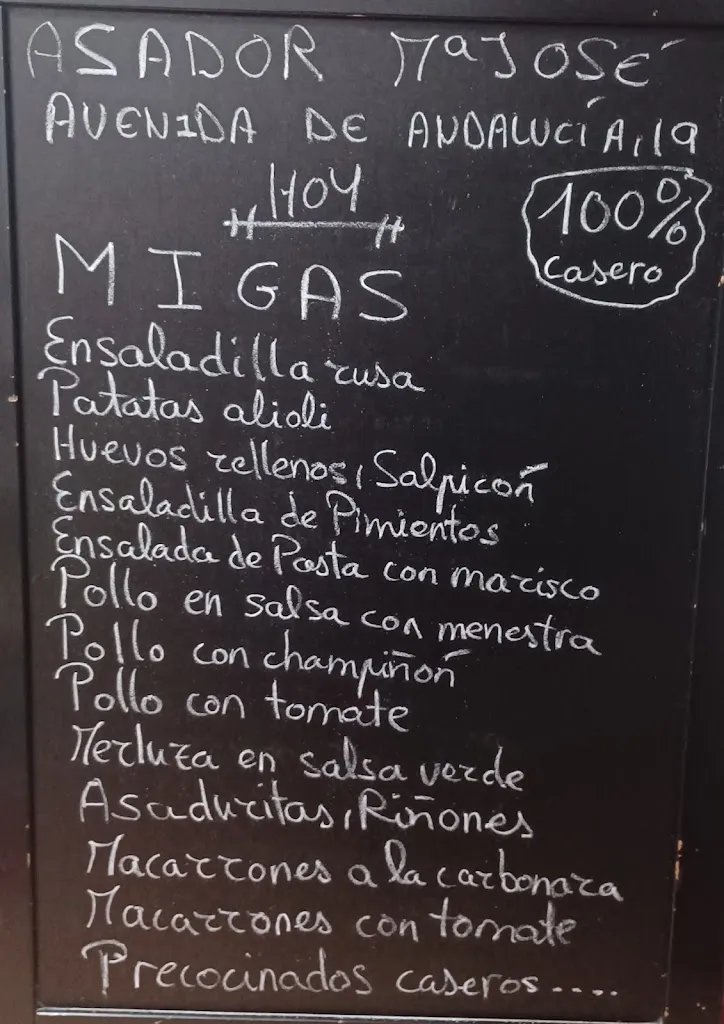 ASADOR Mª JOSÉ
AVENIDA DE ANDALUCÍA, 19
HOY
100%
casero
MIGAS
Ensaladilla rusa
Patatas alioli
Huevos rellenos, Salpicón
Ensaladilla de Pimientos
Ensalada de Pasta con marisco
Pollo en salsa con menestra
Pollo con champiñón
Pollo con tomate
Merluza en salsa verde
Asaduritas, Riñones
Macarrones a la carbonara
Macarrones con tomate
Precocinados caseros.....